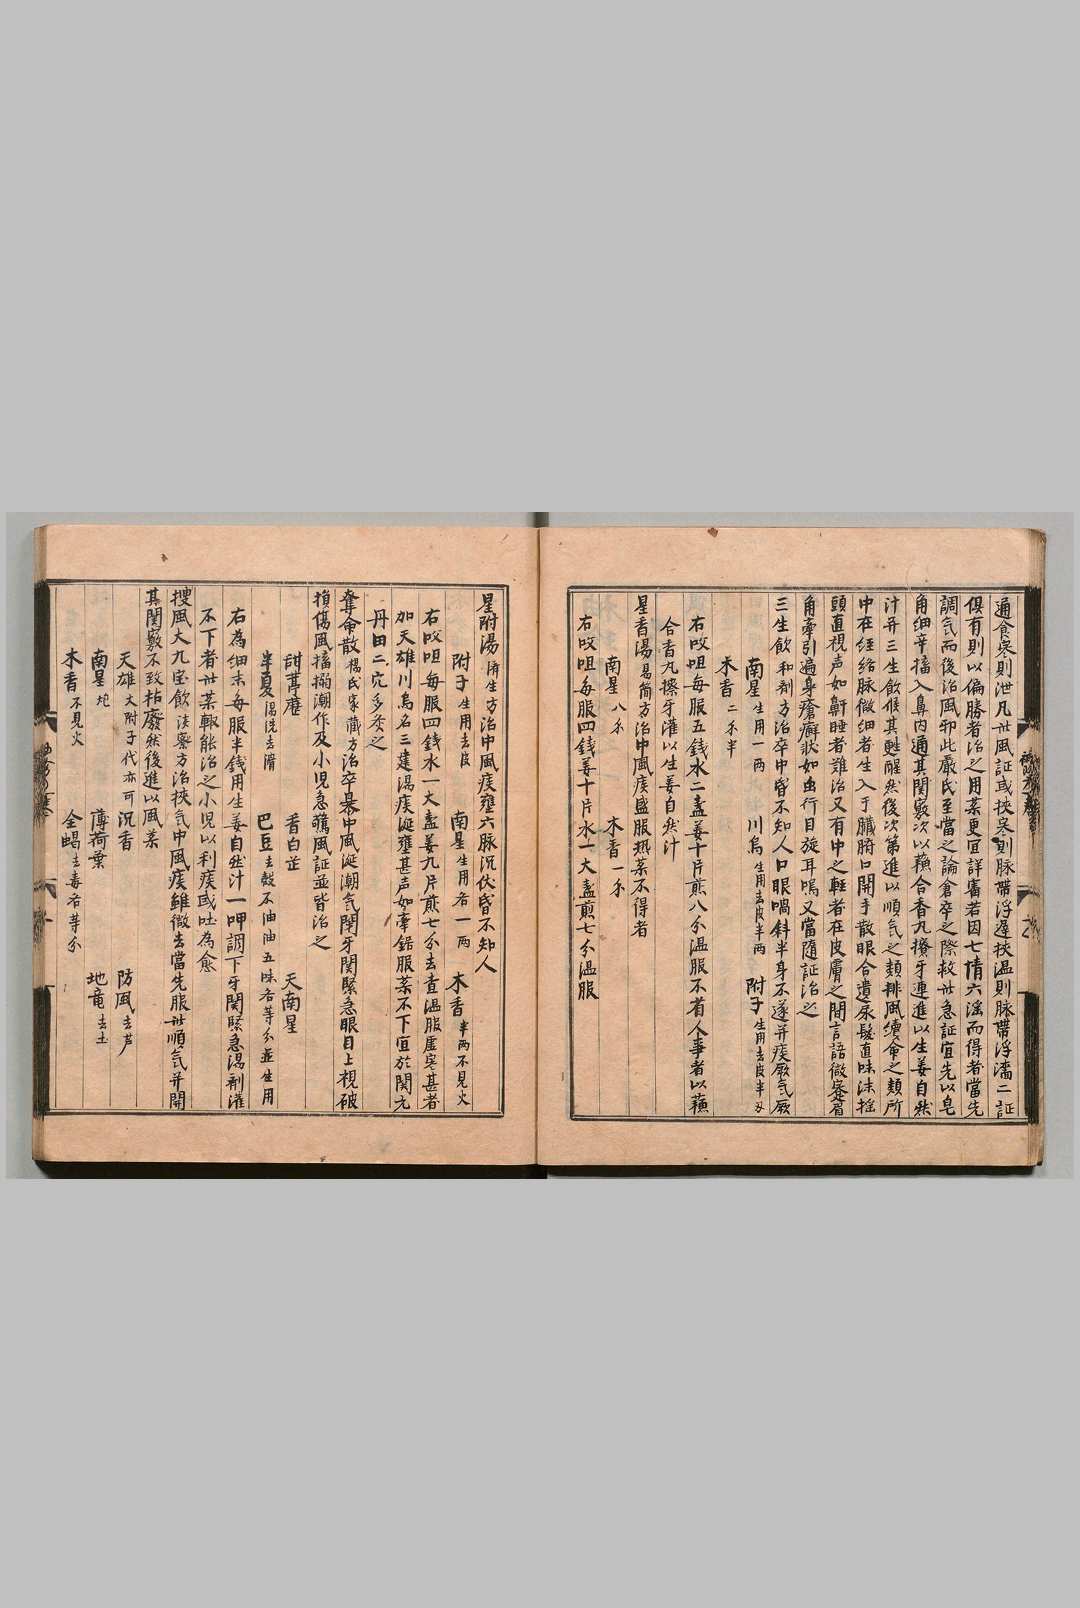 通食寒則泄凡此風証或挾寒則脉帶浮遲挾温則脉帶浮濇二証
俱有則以偏勝者治之用薬更宜詳審若因七情六淫而得者當先
調気而後治風邪此嚴氏至當之論倉卒之際救此急証宜先以皂
角細辛搐入鼻内通其関竅次以蘓合香丸擦牙連進以生姜自然
汁并三生飲候其甦醒然後次第進以順気之類排風續命之類所
中在経絡脉微細者生入于臓腑口開手散眼合遺尿髮直吐沫揺
頭直視声如鼾睡者難治又有中之軽者在皮膚之間言語微蹇眉
角牽引遍身瘡癬状如虫行目旋耳鳴又當隨証治之
三生飲 和剤方治卒中昏不知人口眼喎斜半身不遂并痰厥気厥
南星 生用一両 川烏 生用去皮半両 附子 生用去皮半刄
木香 二不半
右㕮咀毎服五錢水二盞姜十片煎八分温服不省人事者以蘓
合香丸擦牙灌以生姜自然汁
星香湯 易簡方治中風痰盛服熱薬不得者
南星 八不 木香 一不
右㕮咀毎服四錢姜十片水一大盞煎七分温服
星附湯 済生方治中風痰壅六脉沉伏昏不知人
附子 生用去皮 南星 生用各一両 木香 半両不見火
右㕮咀毎服四錢水一大盞姜九片煎七分去査温服虚寒甚者
加天雄川烏名三建湯痰涎壅甚声如牽鋸服薬不下宜於関元
丹田二穴多灸之
奪命散 楊氏家蔵方治卒暴中風涎潮気閉牙関緊急眼目上視破
損傷風搐搦潮作及小児急驚風証並皆治之
甜葶藶 香白芷 天南星
半夏 湯洗去滑 巴豆 去殻不油 五味各等分並生用
右為細末毎服半錢用生姜自然汁一呷調下牙関緊急湯剤灌
不下者此薬輒能治之小児以利痰或吐為愈
搜風大九宝飲 済 方治挾気中風痰雖微去當先服此順気并開
其関竅不致枯廢然後進以風薬
天雄 大附子代亦可 沉香 防風 去芦
南星 炮 薄荷葉 地竜 去土
木香 不見火 全蝎 去毒各等分